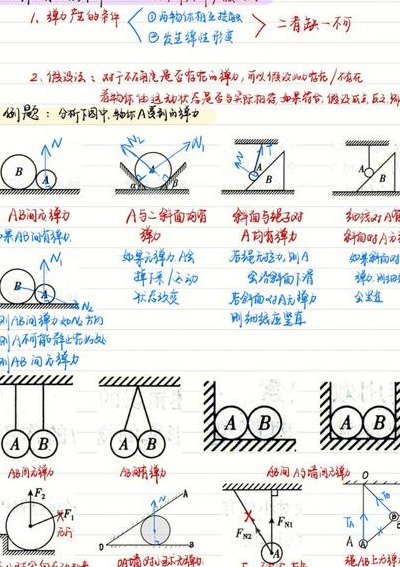 1、弹力产生的条件
①两物体相互接触
②发生弹性形变
二者缺一不可
2、假设法：对于不确定是否存在的弹力，可以假设如力存在/不存在
若物体的运动状态是否与实际相符，如果符合，假设成立，反之，则
例题：分析下图中，物体A受到的弹力
B A N
N₂ N₁ A α β
N T A
A B
AB间无弹力
A与二斜面均有
弹力
斜面与绳子对
A均有弹力
细线对A有
斜面对A无
果AB间有弹力
如果无弹力A会
掉下来/运动
状态改变
若绳无拉力，则A
会沿斜面下滑
若斜面对A无弹力
则细线应竖直
如果斜面对
弹力，则细线
会竖直
B A N₁ N₂
则AB间弹力如N₂方向
则A不可能静止在此处
则AB间无弹力
A B
A B
A B
A B
AB间无弹力
AB间有弹力
AB间、A与墙间无弹力
F₂ F₁
N A O B
F_N2 F_N1 A
O T_A T_B A B
OA墙对小球无弹力